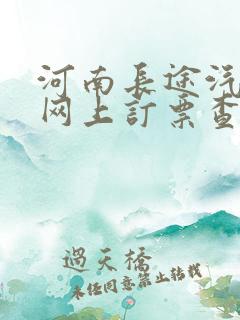 河南長途汽
网上訂票查
過天橋
未经同意禁止转载